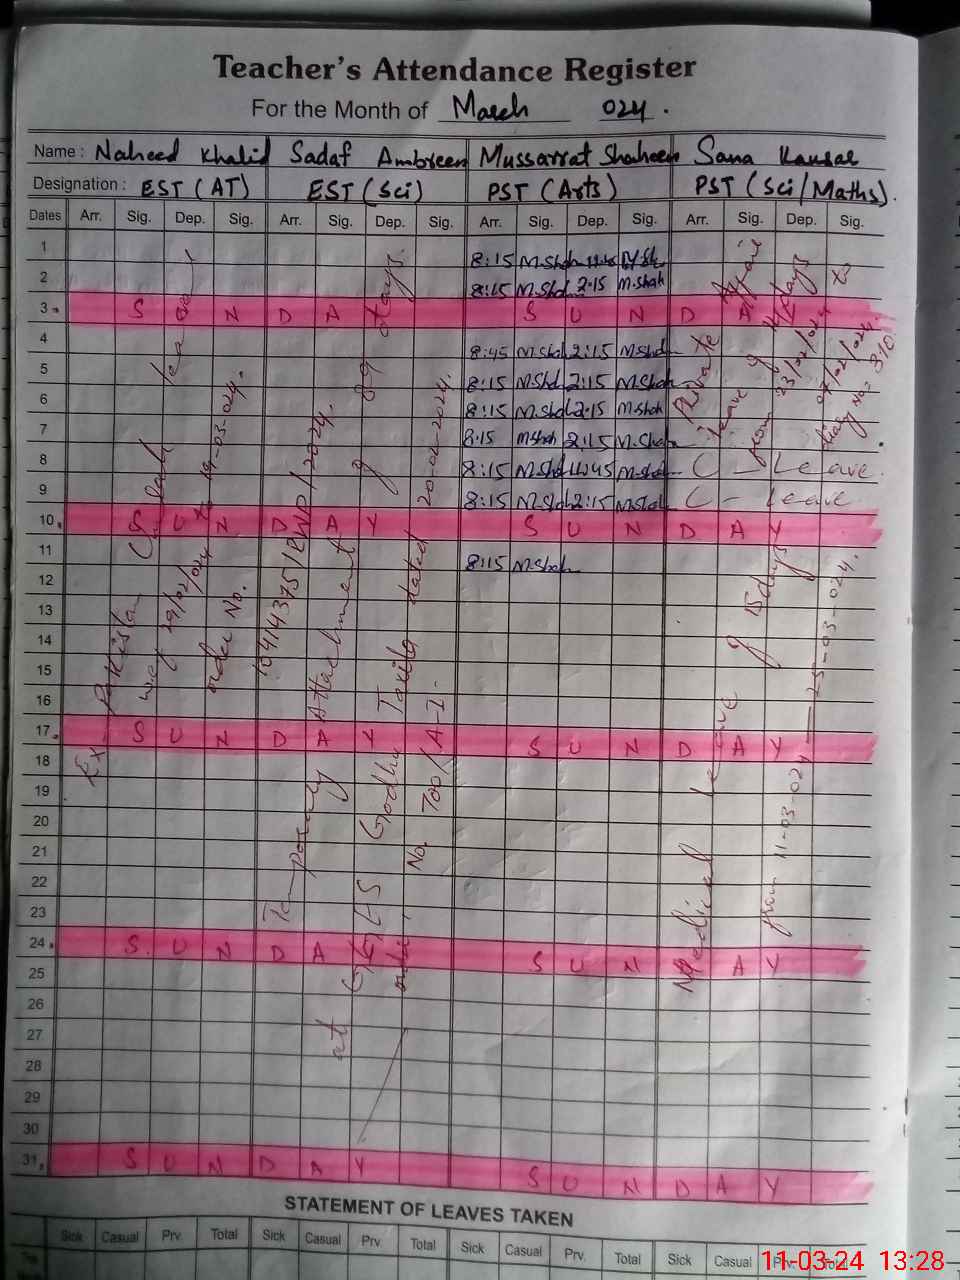 Teacher's Attendance Register
For the Month of March 024.
Name : Naheed Khalid Sadaf Ambreen Mussarrat Shaheen Sana Kausar
Designation : EST (AT) EST (Sci) PST (Arts) PST (Sci/Maths).
Dates Arr. Sig. Dep. Sig. Arr. Sig. Dep. Sig. Arr. Sig. Dep. Sig. Arr. Sig. Dep. Sig.
1 8:15 M.Shah
2 8:15 M.Shah 2:15 M.Shah
3. S U N D A S U N D A
4 8:45 M.Shah 2:15 M.Shah
5 8:15 M.Shah 2:15 M.Shah
6 8:15 M.Shah 2:15 M.Shah
7 8:15 M.Shah 2:15 M.Shah
8 8:15 M.Shah 11:45 M.Shah C - Leave.
9 8:15 M.Shah 2:15 M.Shah C - Leave
10. S U N D A Y S U N D A Y
11 8:15 M.Shah
12
13
14
15
16
17. S U N D A Y S U N D A Y
18
19
20
21
22
23
24. S U N D A S U N A Y
25
26
27
28
29
30
31. S U N D A Y S U N D A Y
Ex Pakistan leave
29/02/024 to 19-03-024.
order No.
10414375/RWP/2024.
Temporary Attachment of 89 days.
at GGES Godhu Taxila
order No. 700/A-I. dated 20-02-2024.
Private Affairs
leave of days
from 23/02/024 to
07/02/024.
Diary No. 310
Medical leave of 15 days
from 11-03-024 — 25-03-024.
STATEMENT OF LEAVES TAKEN
Sick Casual Prv. Total Sick Casual Prv. Total Sick Casual Prv. Total Sick Casual Prv. Total
11-03-24 13:28